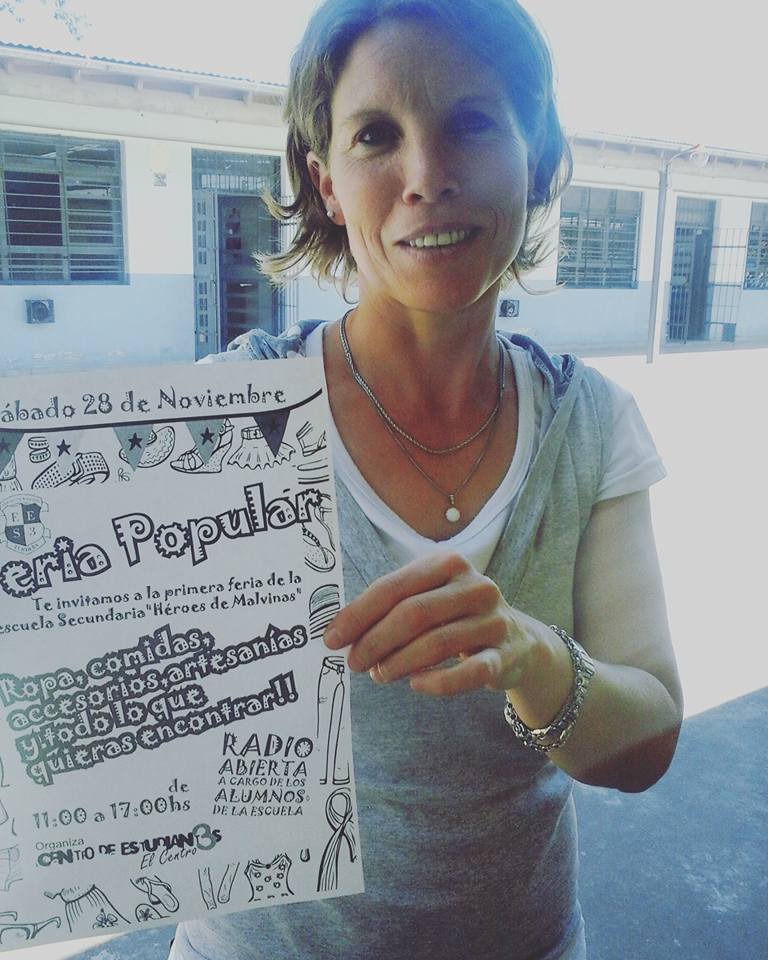 ábado 28 de Noviembre
EES
3
eria Popular
Te invitamos a la primera feria de la
escuela Secundaria "Héroes de Malvinas"
Ropa, comidas,
accesorios, artesanías
y todo lo que
quieras encontrar!!
RADIO
ABIERTA
A CARGO DE LOS
ALUMNOS
DE LA ESCUELA
de
11:00 a 17:00hs
Organiza
CENTRO DE ESTUDIAN3S
El Centro